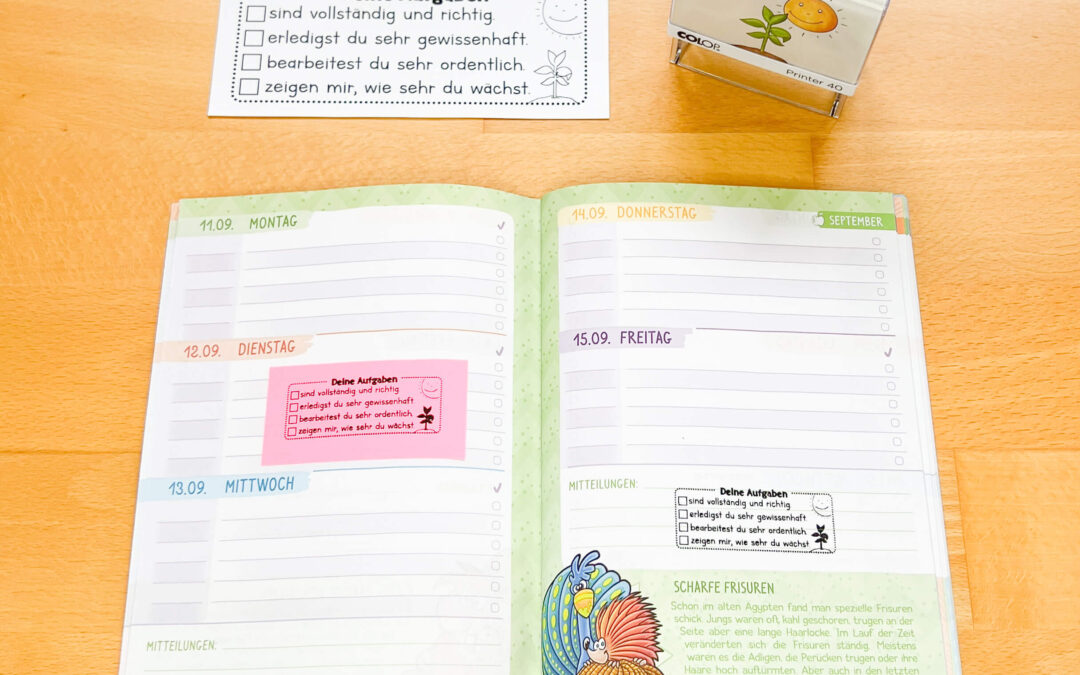 sind vollständig und richtig.
erledigst du sehr gewissenhaft.
bearbeitest du sehr ordentlich.
zeigen mir, wie sehr du wächst.
COLOP
Printer 40
11.09. MONTAG
12.09. DIENSTAG
Deine Aufgaben
sind vollständig und richtig.
erledigst du sehr gewissenhaft.
bearbeitest du sehr ordentlich.
zeigen mir, wie sehr du wächst.
13.09. MITTWOCH
MITTEILUNGEN:
14.09. DONNERSTAG
SEPTEMBER
15.09. FREITAG
MITTEILUNGEN:
Deine Aufgaben
sind vollständig und richtig.
erledigst du sehr gewissenhaft.
bearbeitest du sehr ordentlich.
zeigen mir, wie sehr du wächst.
SCHARFE FRISUREN
Schon im alten Ägypten fand man spezielle Frisuren
schick. Jungs waren oft kahl geschoren, trugen an der
Seite aber eine lange Haarlocke. Im Lauf der Zeit
veränderten sich die Frisuren ständig. Meistens
waren es die Adligen, die Perücken trugen oder ihre
Haare hoch auftürmten. Aber auch in den letzten